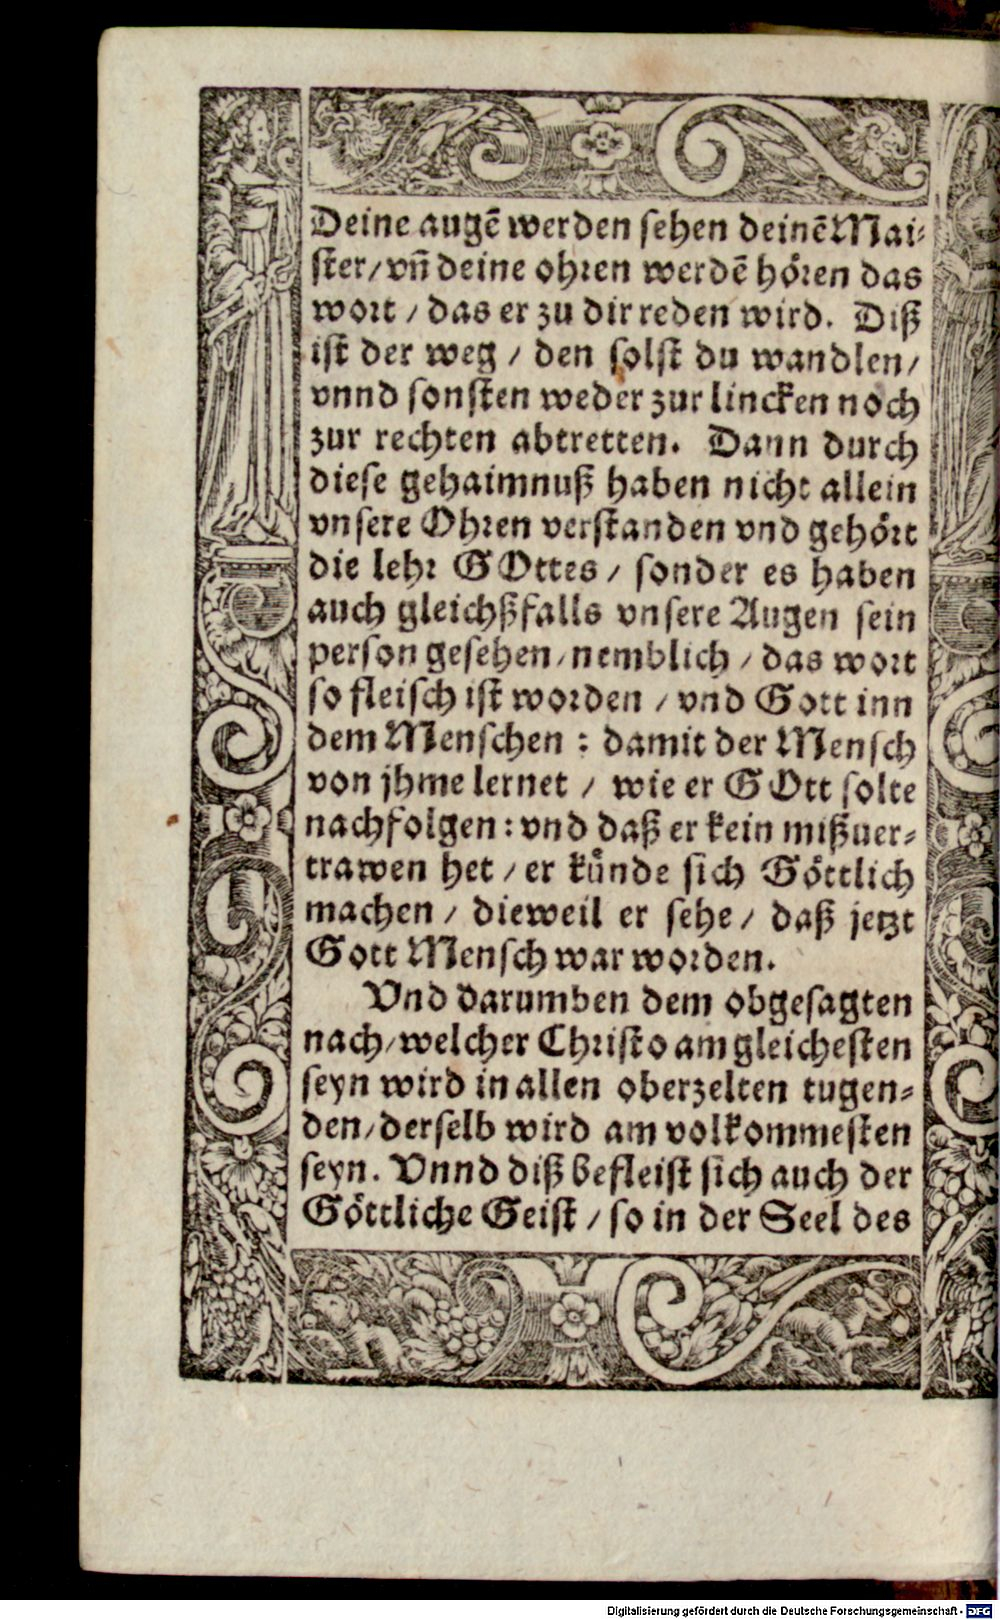 Deine augē werden sehen deinē Mai-
ster/vñ deine ohren werdē hören das
wort / das er zu dir reden wird. Diß
ist der weg / den solst du wandlen/
vnnd sonsten weder zur lincken noch
zur rechten abtretten. Dann durch
diese gehaimnuß haben nicht allein
vnsere Ohren verstanden vnd gehört
die lehr GOttes / sonder es haben
auch gleichßfalls vnsere Augen sein
person gesehen/nemblich / das wort
so fleisch ist worden / vnd Gott inn
dem Menschen : damit der Mensch
von jhme lernet / wie er GOtt solte
nachfolgen : vnd daß er kein mißuer-
trawen het / er kuͤnde sich Göttlich
machen / dieweil er sehe / daß jetzt
Gott Mensch war worden.
Vnd darumben dem obgesagten
nach/welcher Christo am gleichesten
seyn wird in allen oberzelten tugen-
den/derselb wird am volkommesten
seyn. Vnnd diß befleist sich auch der
Göttliche Geist / so in der Seel des
Digitalisierung gefördert durch die Deutsche Forschungsgemeinschaft - DFG